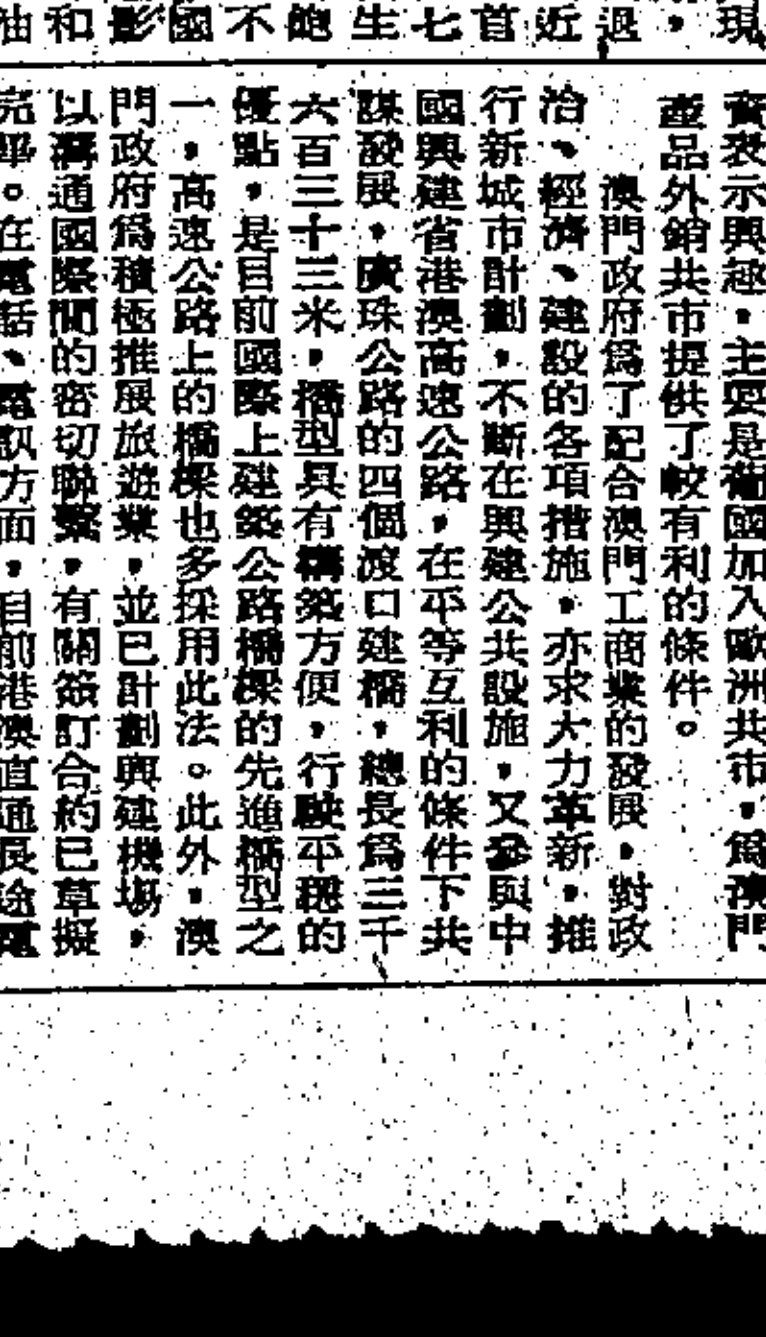 現
，
退
近
首
七
生
飽
不
國
影
和
油
資表示興趣，主要是葡國加入歐洲共市，爲澳門
產品外銷共市提供了較有利的條件。
澳門政府爲了配合澳門工商業的發展，對政
治、經濟、建設的各項措施，亦求大力革新，推
行新城市計劃，不斷在興建公共設施，又參與中
國興建省港澳高速公路，在平等互利的條件下共
謀發展，廣珠公路的四個渡口建橋，總長爲三千
六百三十三米，橋型具有構築方便，行駛平穩的
優點，是目前國際上建築公路橋樑的先進橋型之
一，高速公路上的橋樑也多採用此法。此外，澳
門政府爲積極推展旅遊業，並已計劃興建機場，
以溝通國際間的密切聯繫，有關簽訂合約已草擬
完畢。在電話、電訊方面，目前港澳直通長途電